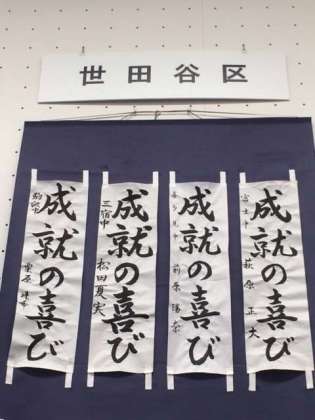 世田谷区
成就の喜び
富士中 萩原 正大
成就の喜び
喜多見中 前原 陽奈
成就の喜び
三宿中 松田夏実
成就の喜び
駒沢中